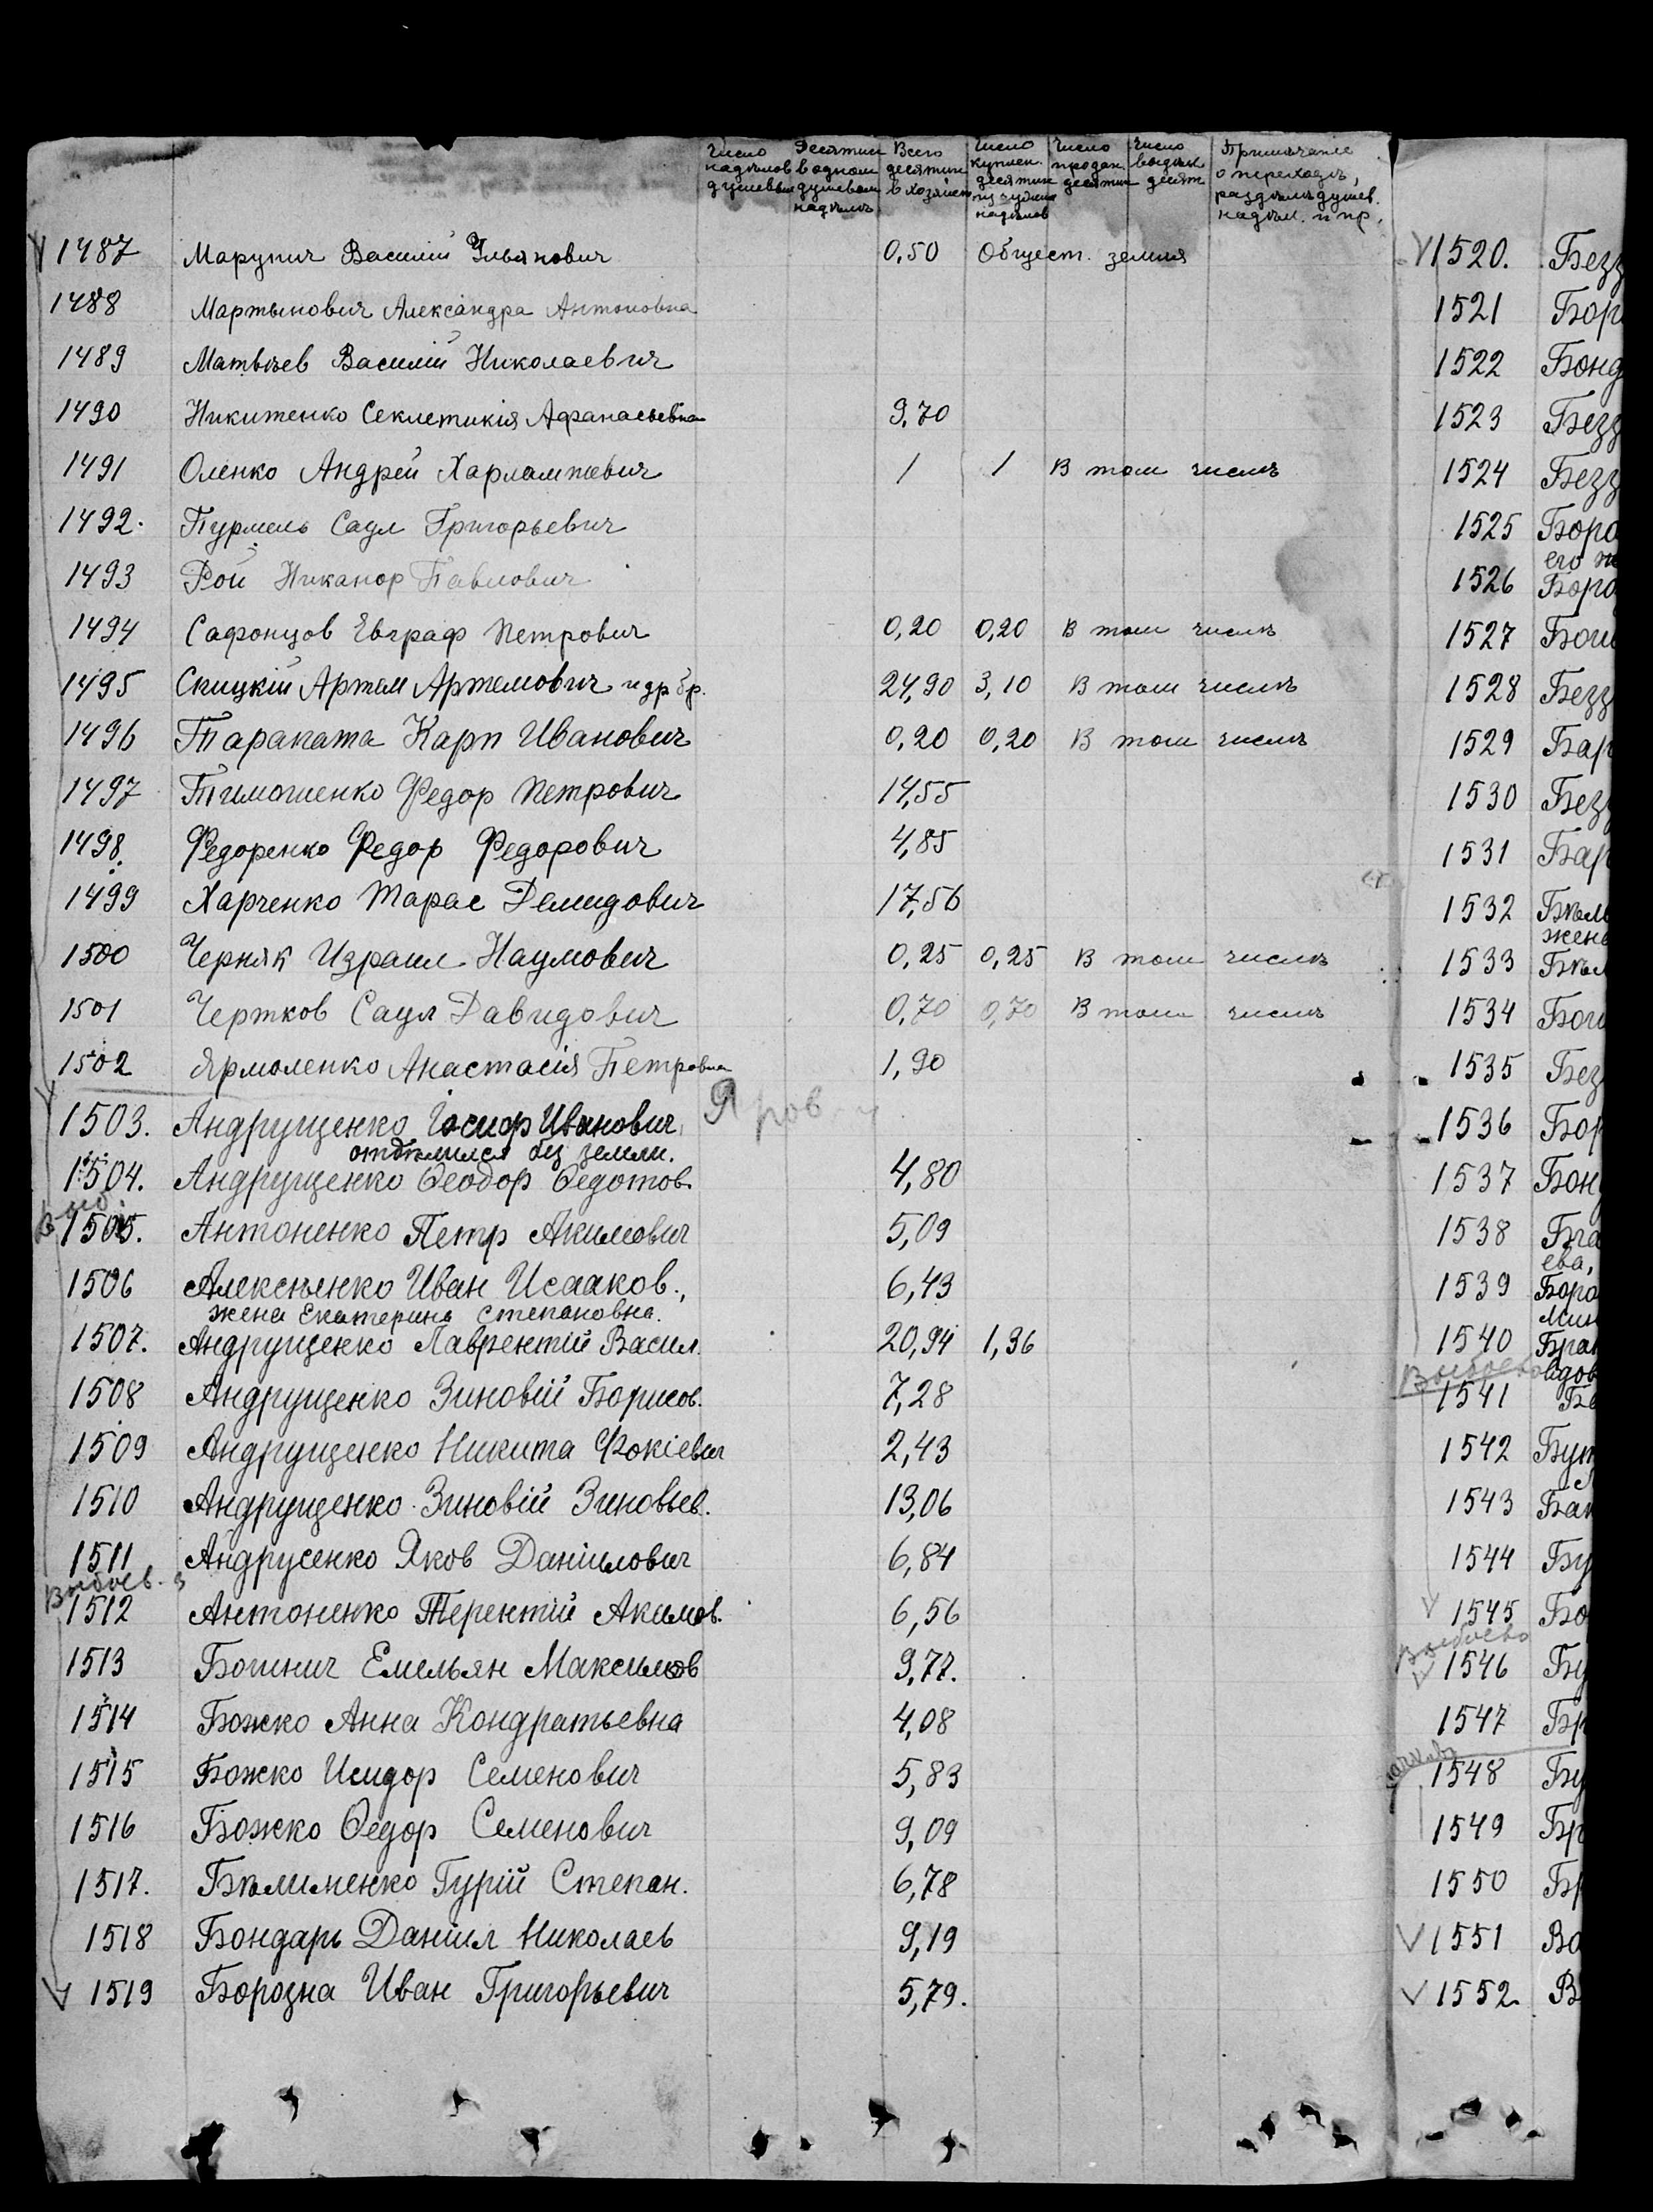 Число надѣлов душевых
Десятин в одном душевом надѣлѣ
Всего десятин в хозяйст.
Число куплен. десятин из чужих надѣлов
Число продан. десятин
Число выдѣл. десят.
Примѣчание о переходѣ, раздѣлѣ душев. надѣл. и пр.
1487 Марунич Василій Ульянович 0,50 Общест. земля
1488 Мартынович Александра Антоновна
1489 Матвѣев Василій Николаевич
1490 Никитенко Секлетикія Афанасьевна 9,70
1491 Оленко Андрей Харлампіевич 1 1 В том числѣ
1492. Пурмель Саул Григорьевич
1493 Рой Никанор Павлович
1494 Сафонцов Евграф Петрович 0,20 0,20 В том числѣ
1495 Скицкій Артем Артемович и др бр. 24,90 3,10 В том числѣ
1496 Тараката Карп Иванович 0,20 0,20 В том числѣ
1497 Тимошенко Федор Петрович 14,55
1498. Федоренко Федор Федорович 4,85
1499 Харченко Тарас Демидович 17,56
1500 Черняк Израил Наумович 0,25 0,25 В том числѣ
1501 Чертков Саул Давидович 0,70 0,70 В том числѣ
1502 Ярмоленко Анастасія Петровна 1,90
1503. Андрущенко Іосиф Иванович
отдѣлился без земли.
1504. Андрущенко Ѳеодор Ѳедотов. 4,80
1505. Антоненко Петр Акимович 5,09
1506 Алексѣенко Иван Исааков., 6,43
жена Екатерина Степановна.
1507. Андрущенко Лаврентій Васил. 20,94 1,36
1508 Андрущенко Зиновій Борисов. 7,28
1509 Андрущенко Никита Фокіевич 2,43
1510 Андрущенко Зиновій Зиновьев. 13,06
1511 Андрусенко Яков Даніилович 6,84
1512 Антоненко Терентій Акимов. 6,56
1513 Богинич Емельян Максимов 9,77.
1514 Божко Анна Кондратьевна 4,08
1515 Божко Исидор Семенович 5,83
1516 Божко Ѳедор Семенович 9,09
1517. Бѣлименко Гурій Степан. 6,78
1518 Бондарь Даніил Николаев 9,19
1519 Борозна Иван Григорьевич 5,79.
1520. Безз
1521 Бор
1522 Бонд
1523 Безз
1524 Безз
1525 Боро
его ж
1526 Боро
1527 Боги
1528 Безз
1529 Бар
1530 Без
1531 Бар
1532 Бѣл
жена
1533 Бѣл
1534 Боги
1535 Без
1536 Бор
1537 Бон
1538 Бга
ева,
1539 Боро
Мин
1540 Бра
вдов
1541 Бе
1542 Бут
1543 Бак
1544 Бу
1545 Бо
1546 Бу
1547 Бр
1548 Бу
1549 Бр
1550 Бр
1551 Во
1552. В